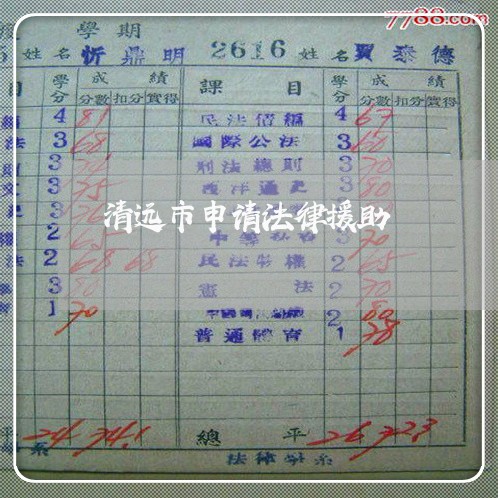 7788.com
學期
姓名 忻鼎明 2616 姓名 賈泰德
目 學分 成績 課目 學分 成績
分數 扣分 實得 分數 扣分 實得
4 81 民法債編 4 67
法 3 68 國際公法 3 60
3 刑法總則 3 70
3 75 西洋通史 3 80
3
清远市申请法律援助
2 3 70
法 2 68 68 民法物權 2 65
3 80 憲法 2 70
1 70 2 80
普通體育 1 78
平 24 74.1 總平 26 72.3
系 法律學系